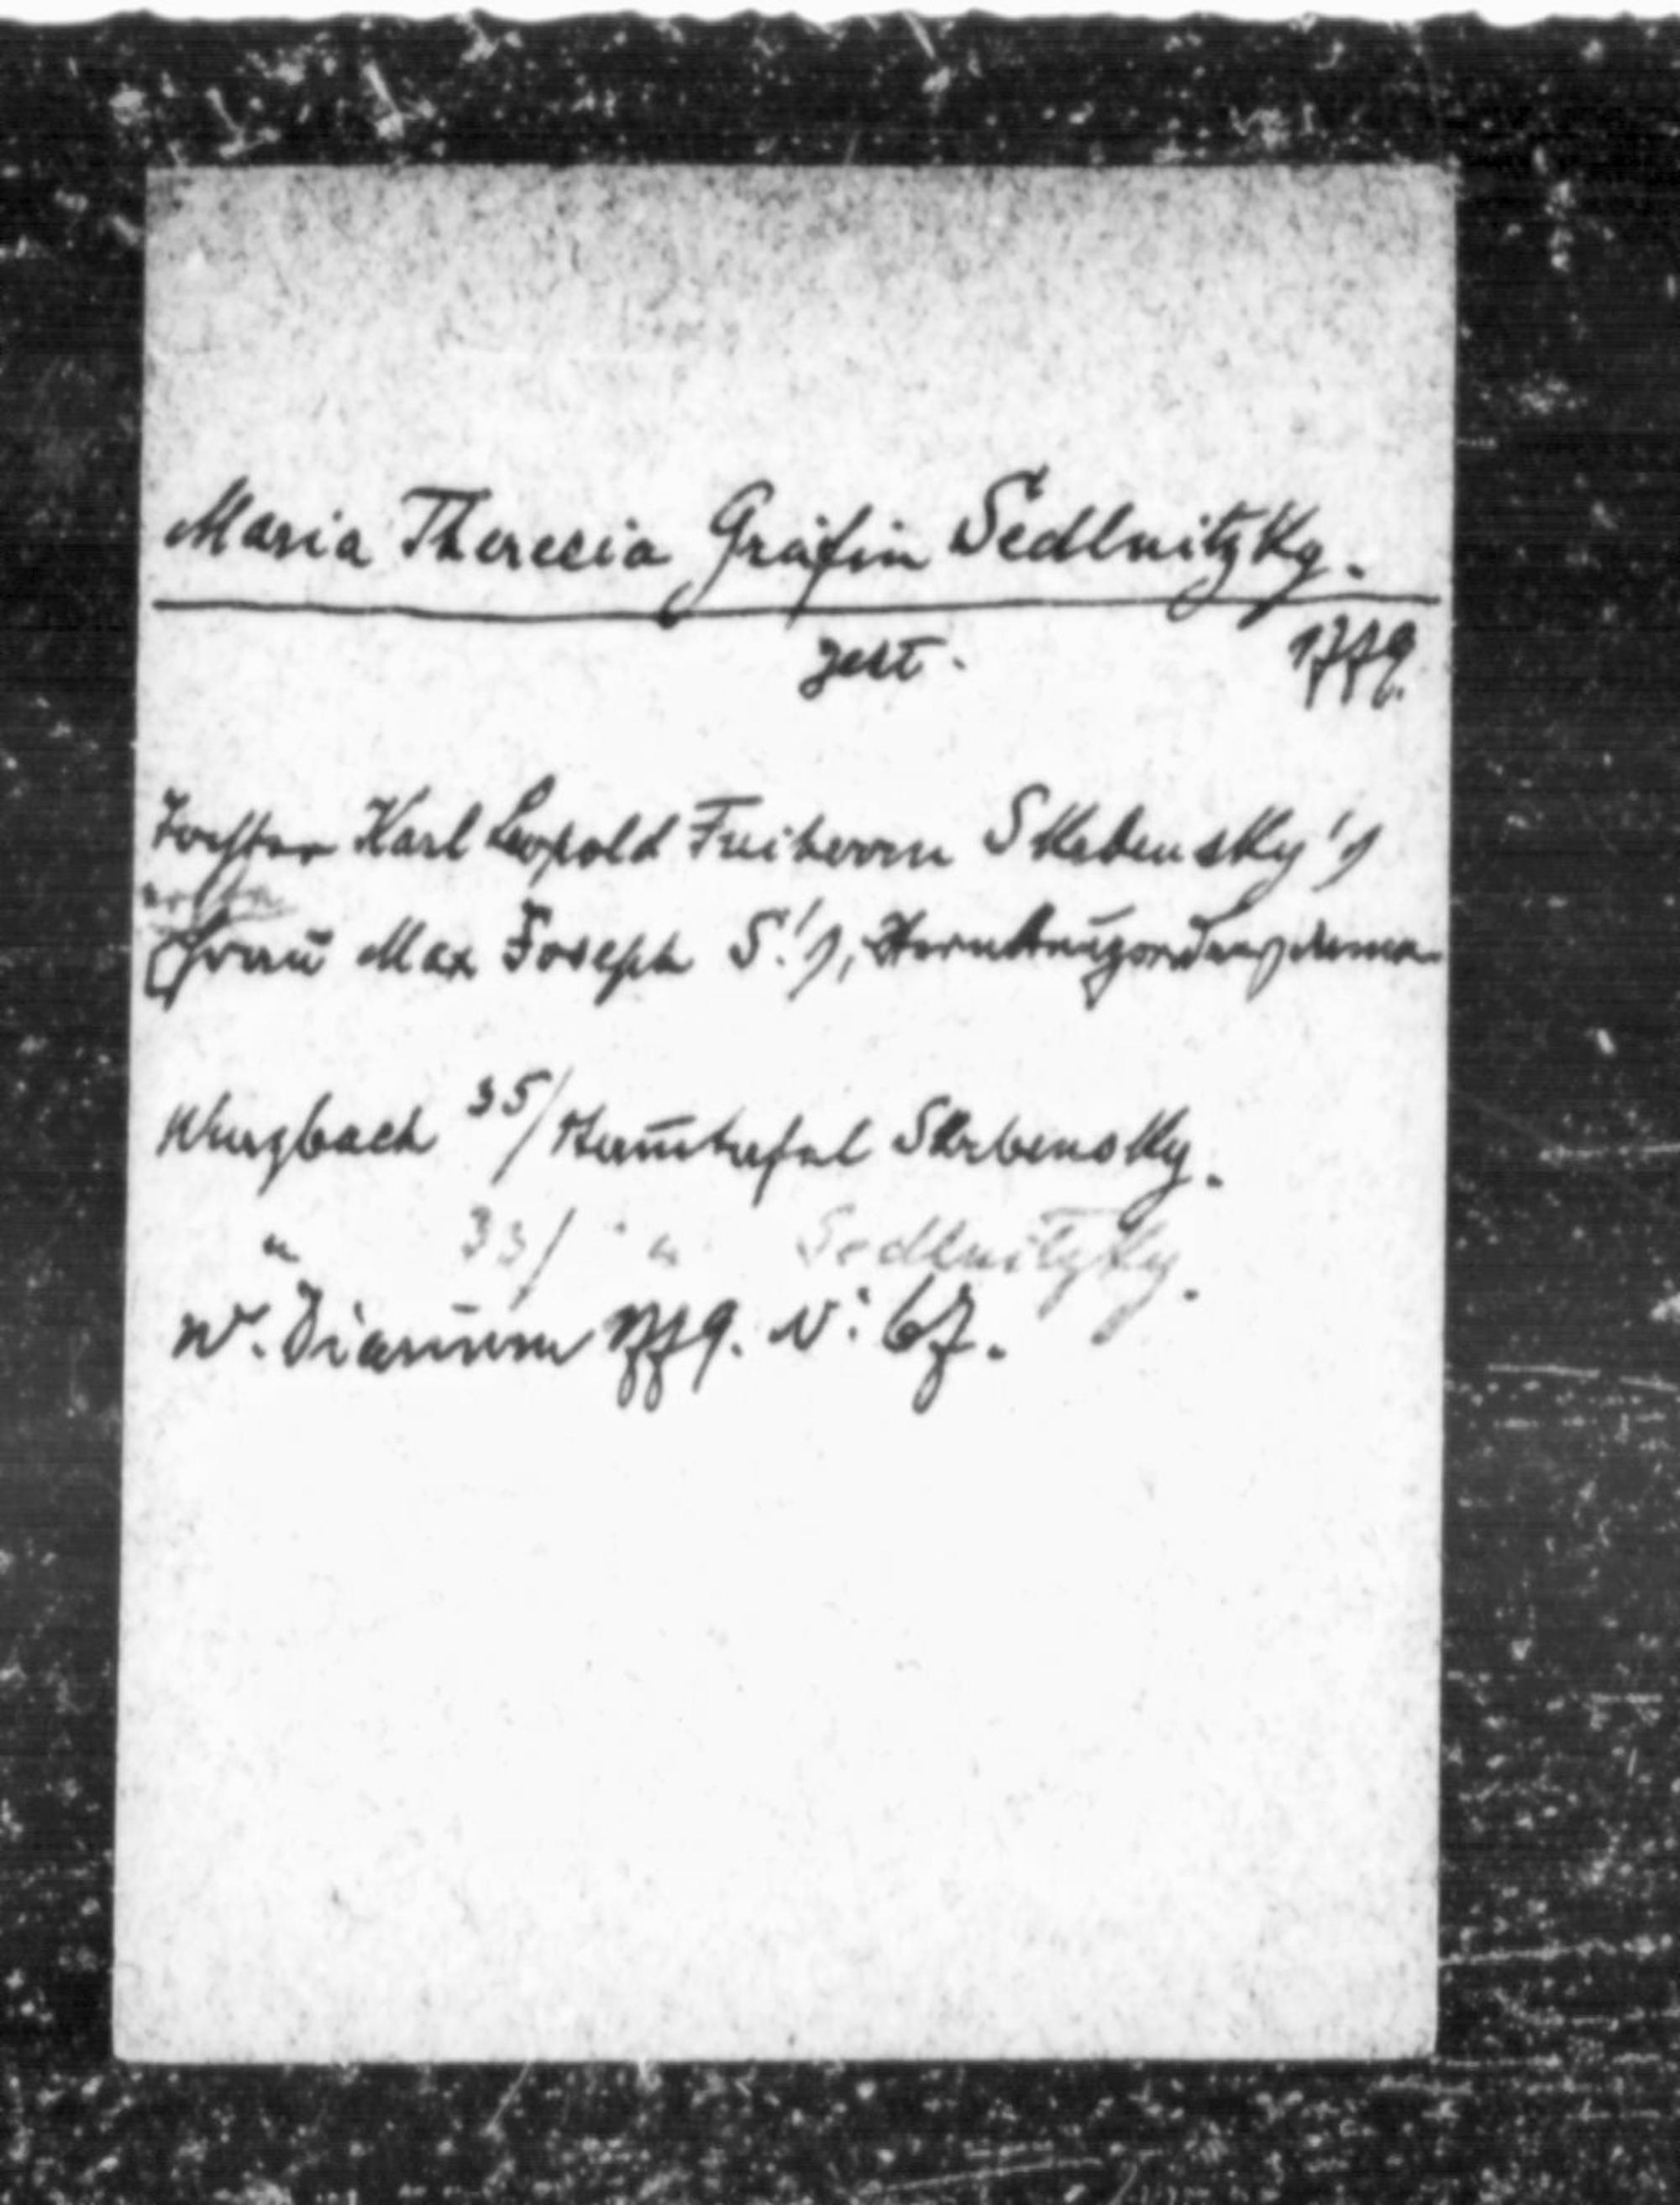 Maria Theresia Gräfin Sedlnitzky.
gest. 1779.
Tochter Karl Leopold Freiherrn Skrbensky's
erste
Frau Max Joseph S.'s, Sternkreuzordensdame
Wurzbach 35/Stammtafel Skrbensky.
" 33/ " " Sedlnitzky.
W. Diarium 779. N: 67.